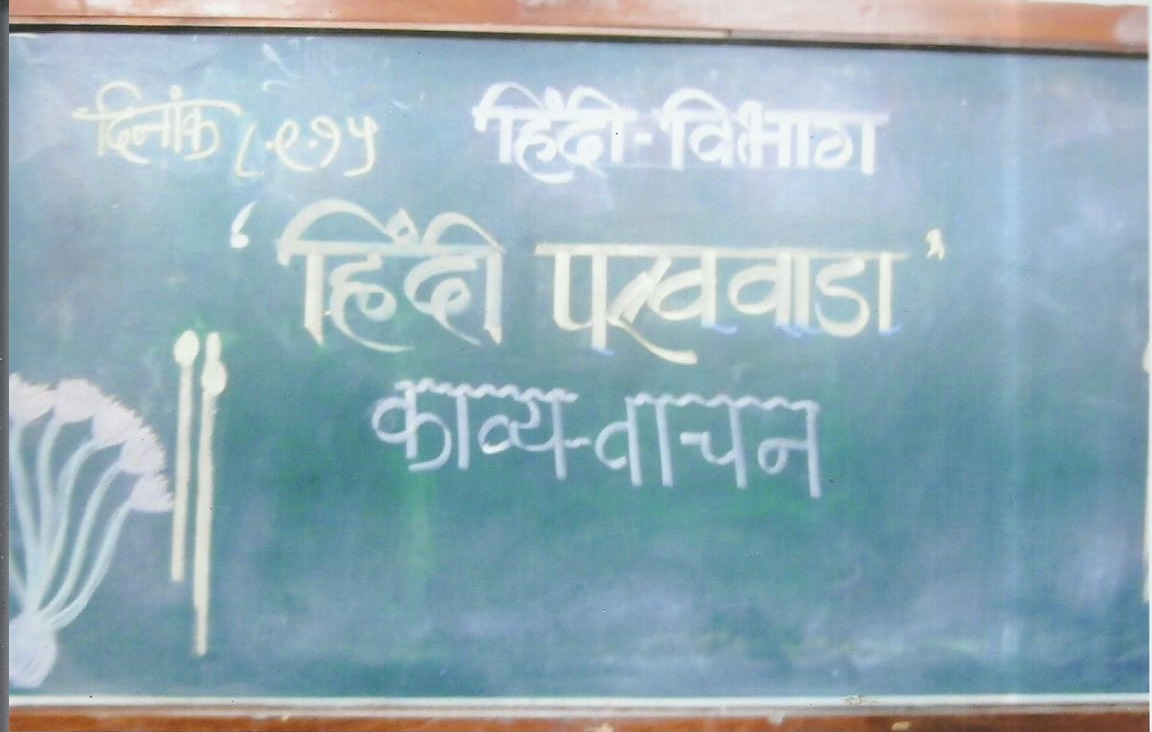 दिनांक ८.९.१५ हिंदी-विभाग
'हिंदी पखवाडा'
काव्य-वाचन